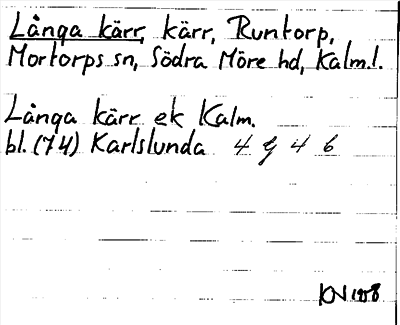 Långa kärr, kärr, Runtorp,
Mortorps sn, Södra Möre hd, Kalm.l.
Långa kärr ek Kalm.
bl. (74) Karlslunda 4 G 4 b
KN 1958